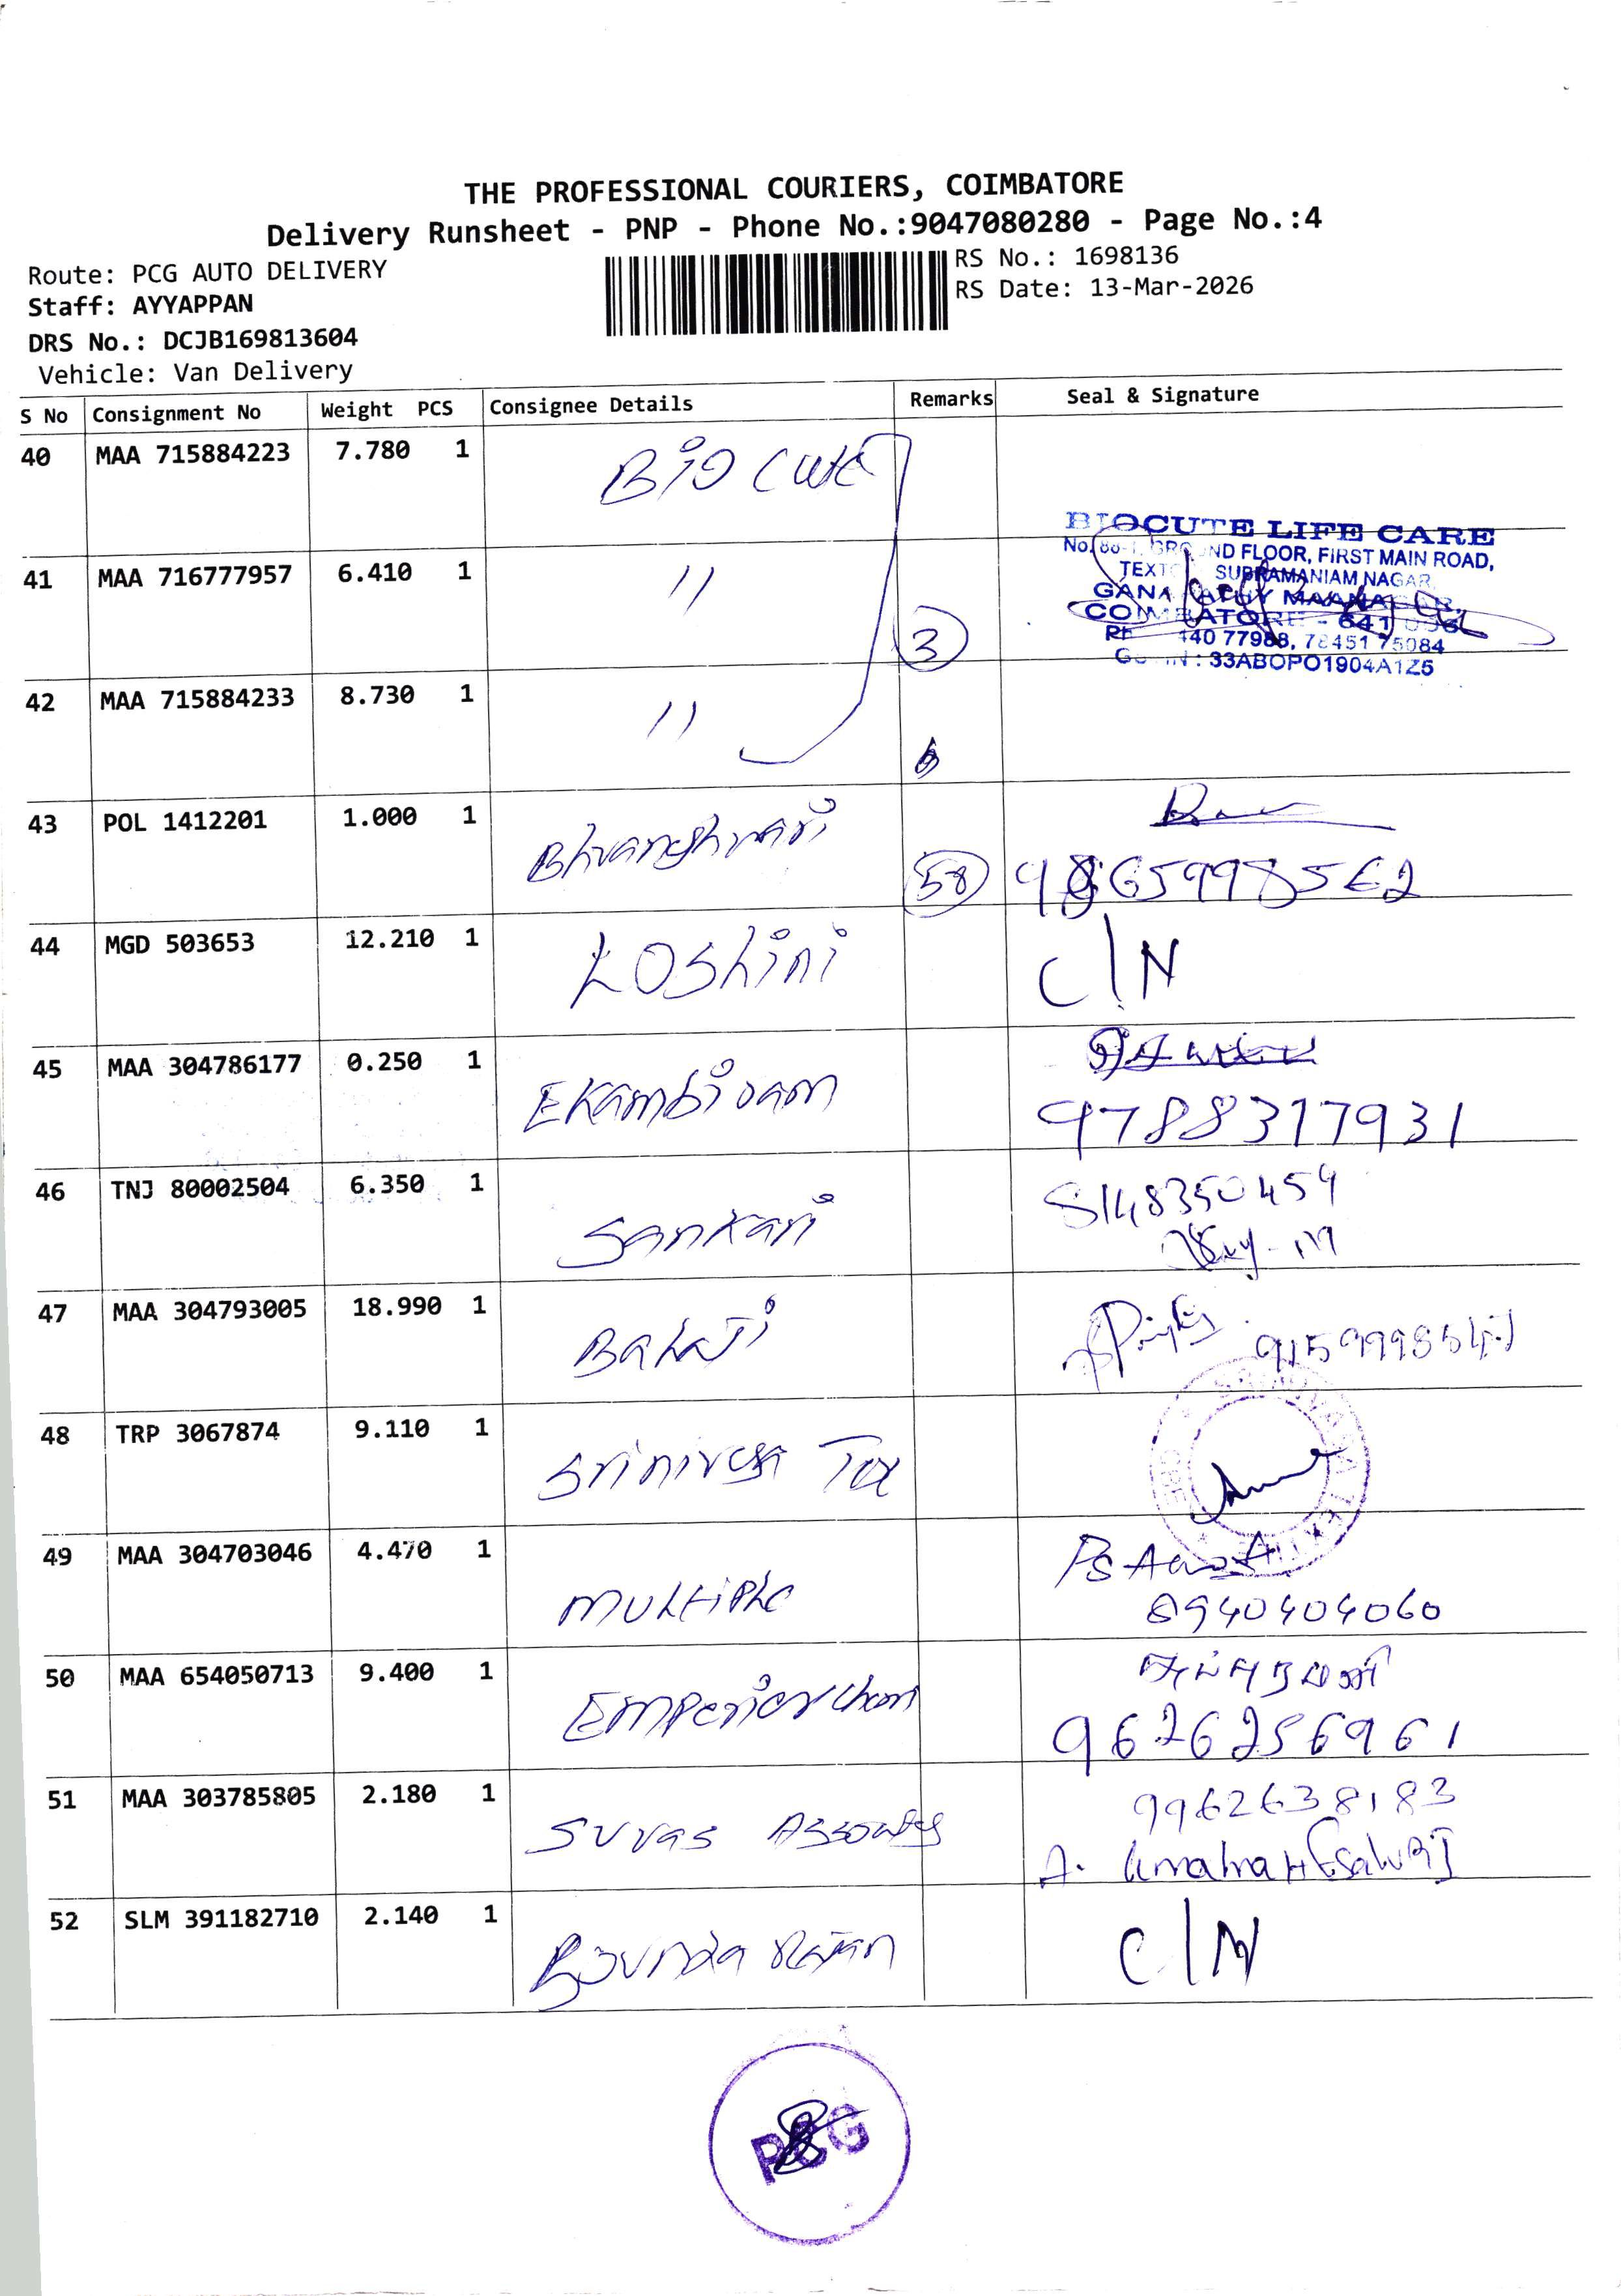 THE PROFESSIONAL COURIERS, COIMBATORE
Delivery Runsheet - PNP - Phone No.:9047080280 - Page No.:4
Route: PCG AUTO DELIVERY
RS No.: 1698136
Staff: AYYAPPAN
RS Date: 13-Mar-2026
DRS No.: DCJB169813604
Vehicle: Van Delivery
S No Consignment No Weight PCS Consignee Details Remarks Seal & Signature
40 MAA 715884223 7.780 1 BIO CUTE
BIOCUTE LIFE CARE
FLOOR, FIRST MAIN ROAD,
41 MAA 716777957 6.410 1 "
SUBRAMANIAM NAGAR,
COIMBATORE - 641
3
77988, 78451 75084
: 33ABOPO1904A1Z5
42 MAA 715884233 8.730 1 "
43 POL 1412201 1.000 1
58
44 MGD 503653 12.210 1 Loshini C/N
45 MAA 304786177 0.250 1 Ekambiram
9788317931
46 TNJ 80002504 6.350 1 Sankari
8148350459
47 MAA 304793005 18.990 1 Balaji
48 TRP 3067874 9.110 1 Srinivasa Tex
49 MAA 304703046 4.470 1 multiple
8940404060
50 MAA 654050713 9.400 1
9626256961
51 MAA 303785805 2.180 1 Suvas Associates
9962638183
52 SLM 391182710 2.140 1 C/N
PCG